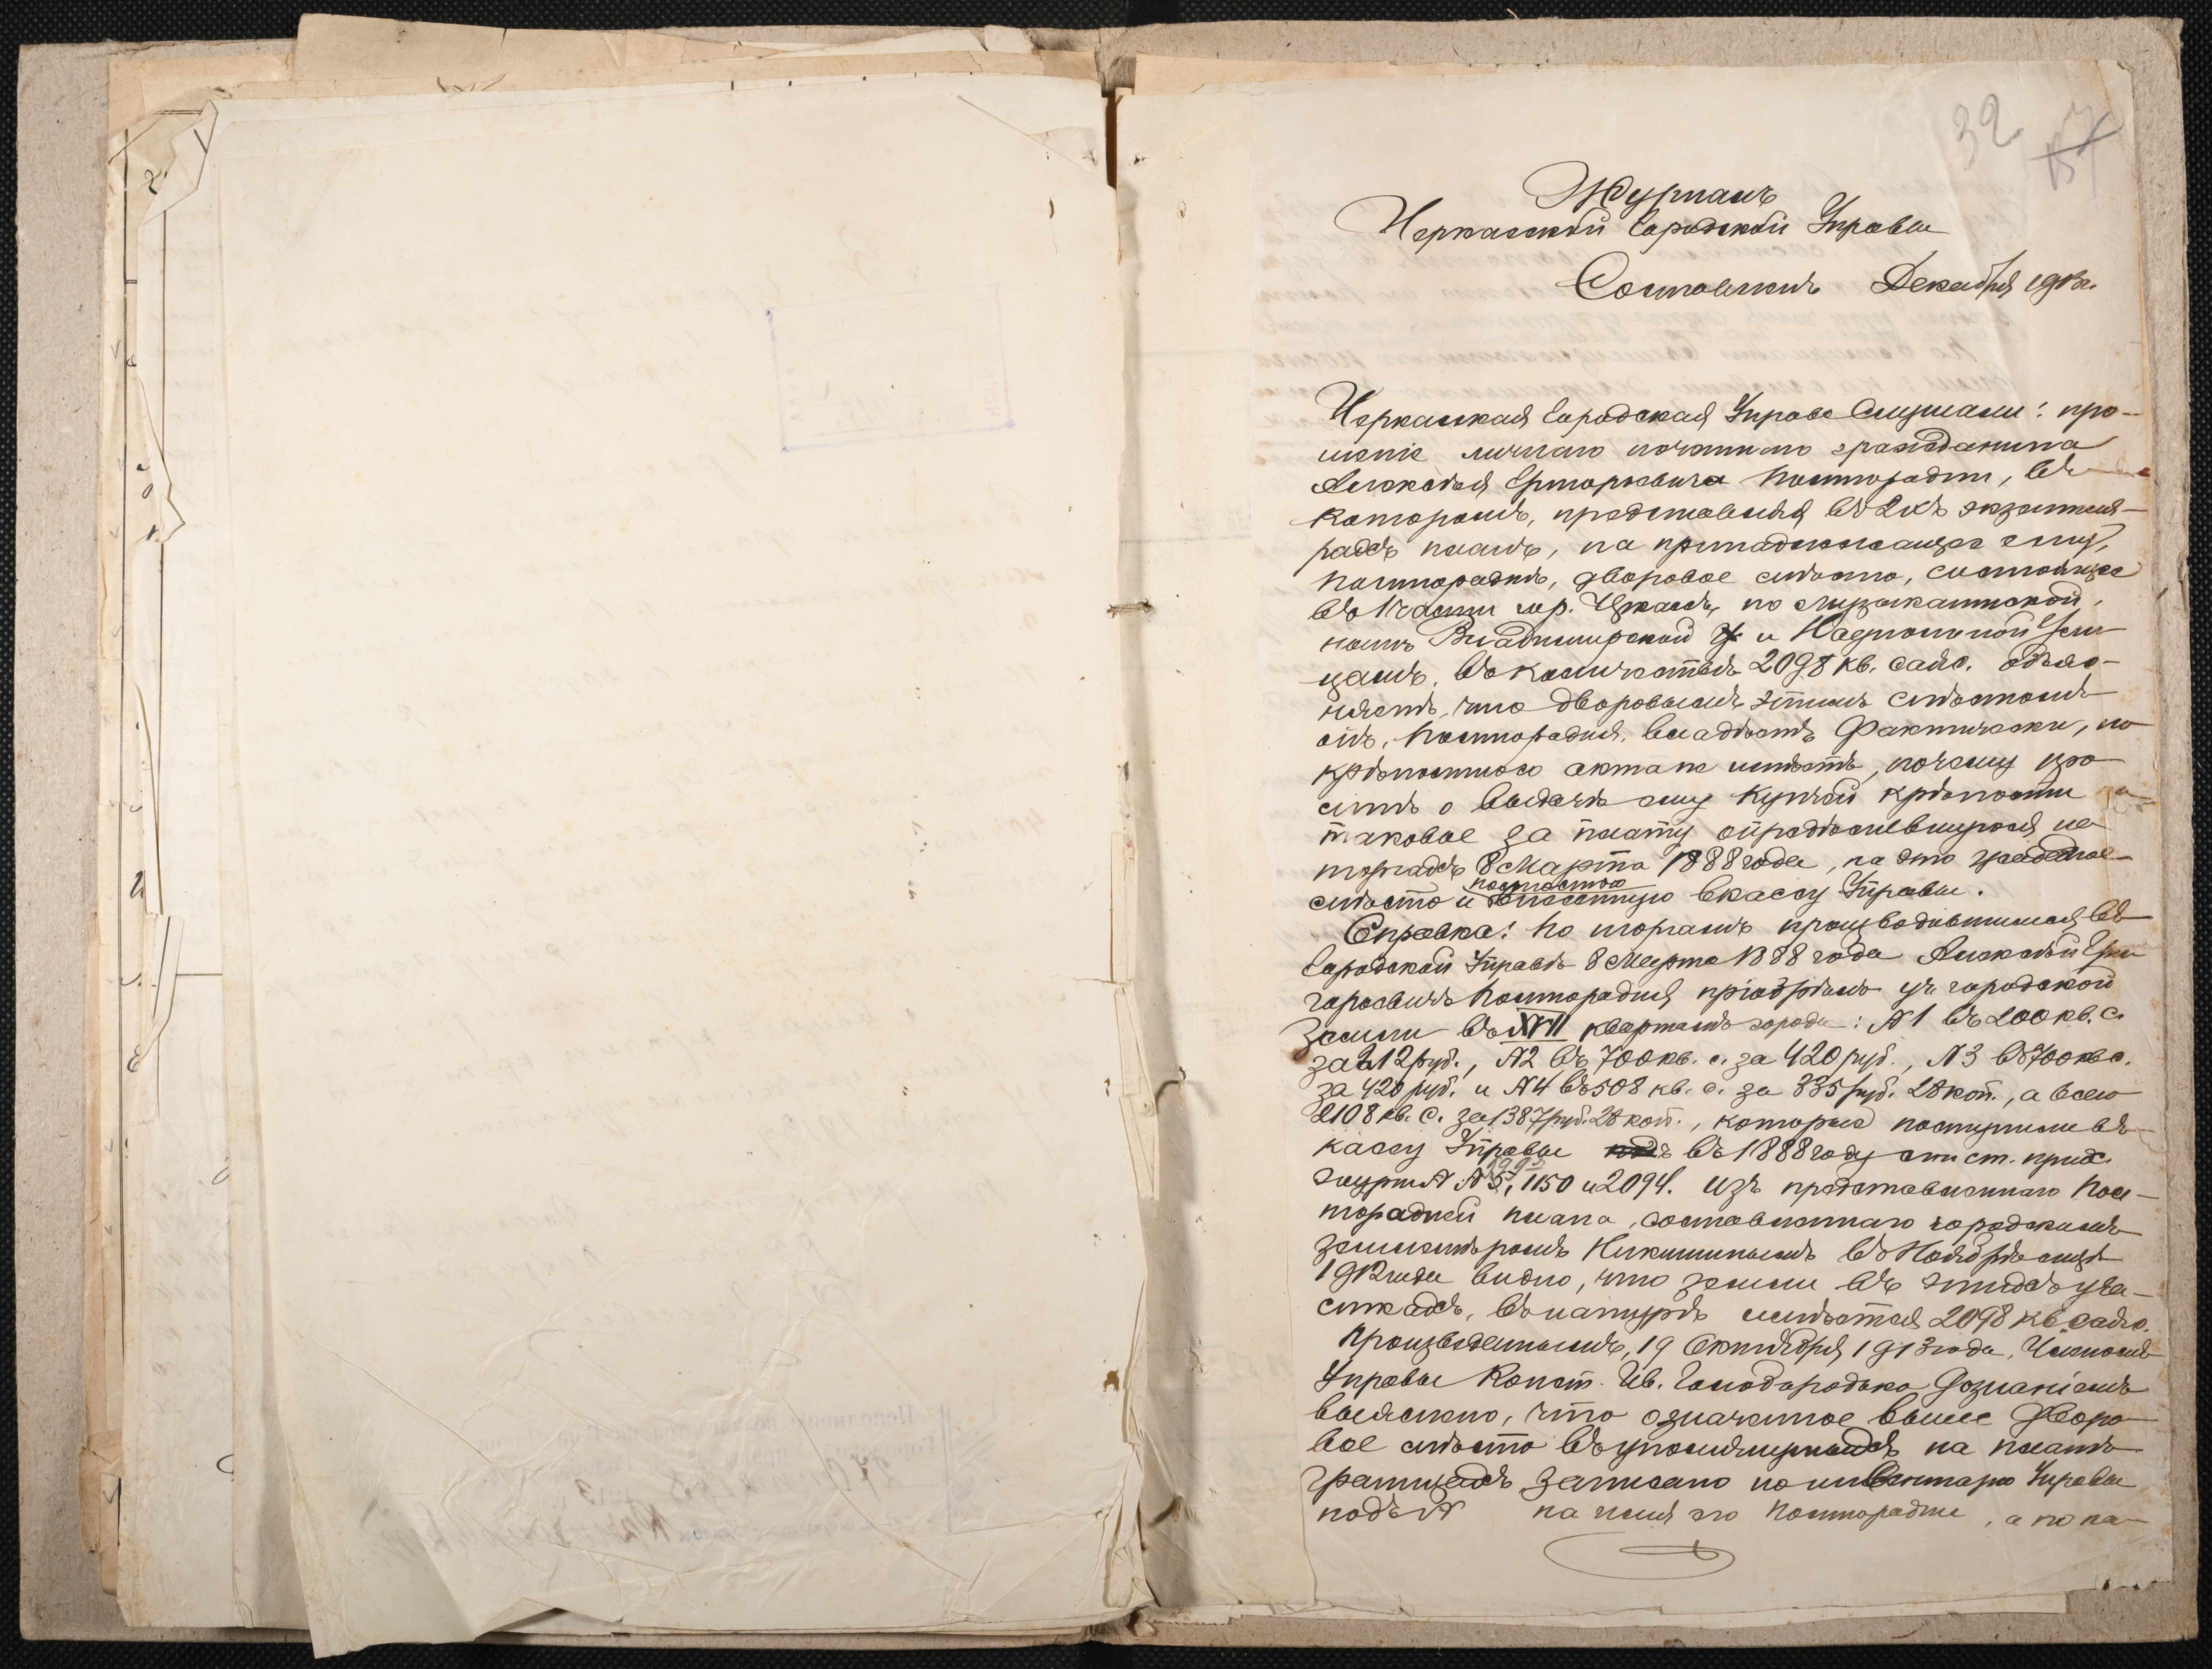 32
Журналъ
Черкасской Городской Управы
Составленъ Декабря 1913г.
Черкасская Городская Управа Слушали: про-
шеніе личнаго почетнаго гражданина
Алексѣя Григорьевича Полторадни, въ
которомъ, представляя въ 2хъ экземпля-
рахъ планъ, на принадлежащее ему,
Полтораднѣ, дворовое мѣсто, состоящее
въ 1 части гор. Черкассъ, по Музыкантской,
Владимирской и Надпольной Ули-
цамъ, въ количествѣ 2098 кв. саж. объяс-
няетъ, что дворовымъ этимъ мѣстомъ
онъ, Полторадня, владѣетъ Фактически, но
крѣпостного акта не имѣетъ, почему про-
ситъ о выдачѣ ему Купчей крѣпости на
таковое за плату опредѣлившуюся на
торгахъ 8 Марта 1888 года, на это усадебное
полностью
мѣсто и внесенную въ кассу Управы.
Справка: По торгамъ производившимся въ
Городской Управѣ 8 Марта 1888 года Алексѣй Гри
горьевичъ Полторадня пріобрѣлъ уч. городской
Земли въ XVII кварталѣ города: №1 въ 200 кв. с.
за 212 руб., №2 въ 700 кв. с. за 420 руб., №3 въ 700 кв. с.
за 420 руб. и №4 въ 508 кв. с. за 335 руб. 28 коп., а всего
2108 кв. с. за 1387 руб. 28 коп., которые поступили въ
кассу Управы въ 1888 году ст. прих.
журн № № 5, 1150 и 2094. Изъ представленнаго Пол-
торадней плана, составленнаго городскимъ
землемѣромъ Никитинымъ въ Ноябрѣ мцѣ
1912 года видно, что земли въ этихъ уча-
сткахъ, въ натурѣ имѣется 2098 кв саж.
Произведеннымъ, 19 Октября 1913 года, Членомъ
Управы Конст. Ив. Господаредько Дознаніемъ
выяснено, что означенное выше Дворо
вое мѣсто въ упомянутыхъ на планѣ
границахъ записано по инвентарю Управы
подъ № на имя его Полторадни, а по на-